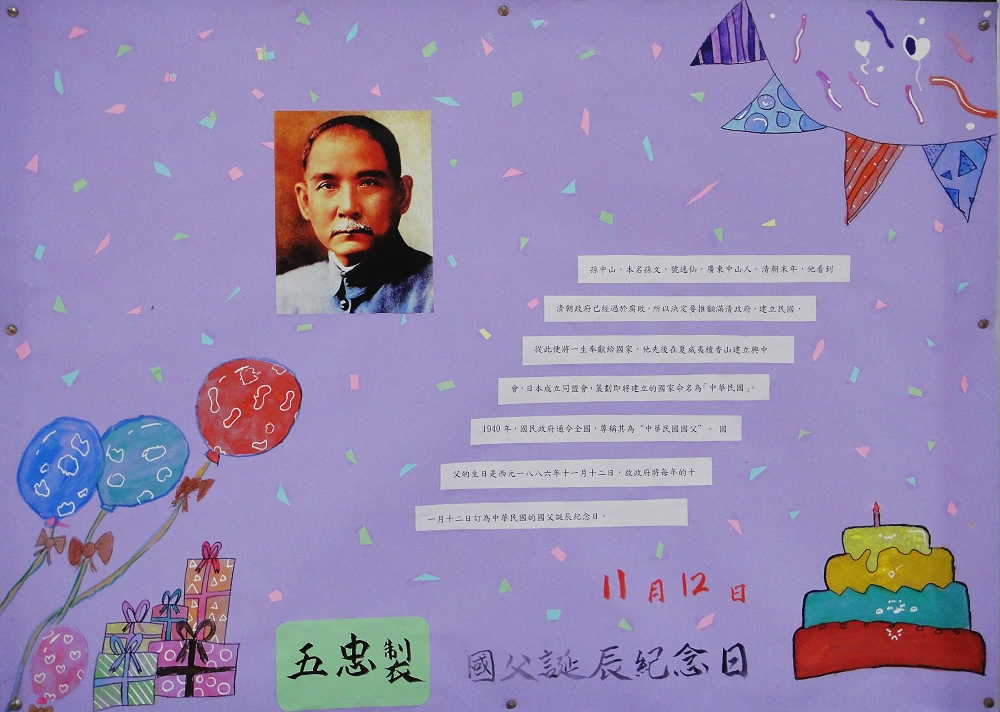 孫中山，本名孫文，號逸仙，廣東中山人。清朝末年，他看到
清朝政府已經過於腐敗，所以決定要推翻滿清政府，建立民國，
從此便將一生奉獻給國家。他先後在夏威夷檀香山建立興中
會，日本成立同盟會，策劃即將建立的國家命名為「中華民國」。
1940 年，國民政府通令全國，尊稱其為“中華民國國父”。 國
父的生日是西元一八八六年十一月十二日，故政府將每年的十
一月十二日訂為中華民國的國父誕辰紀念日。
11月12日
五忠製
國父誕辰紀念日